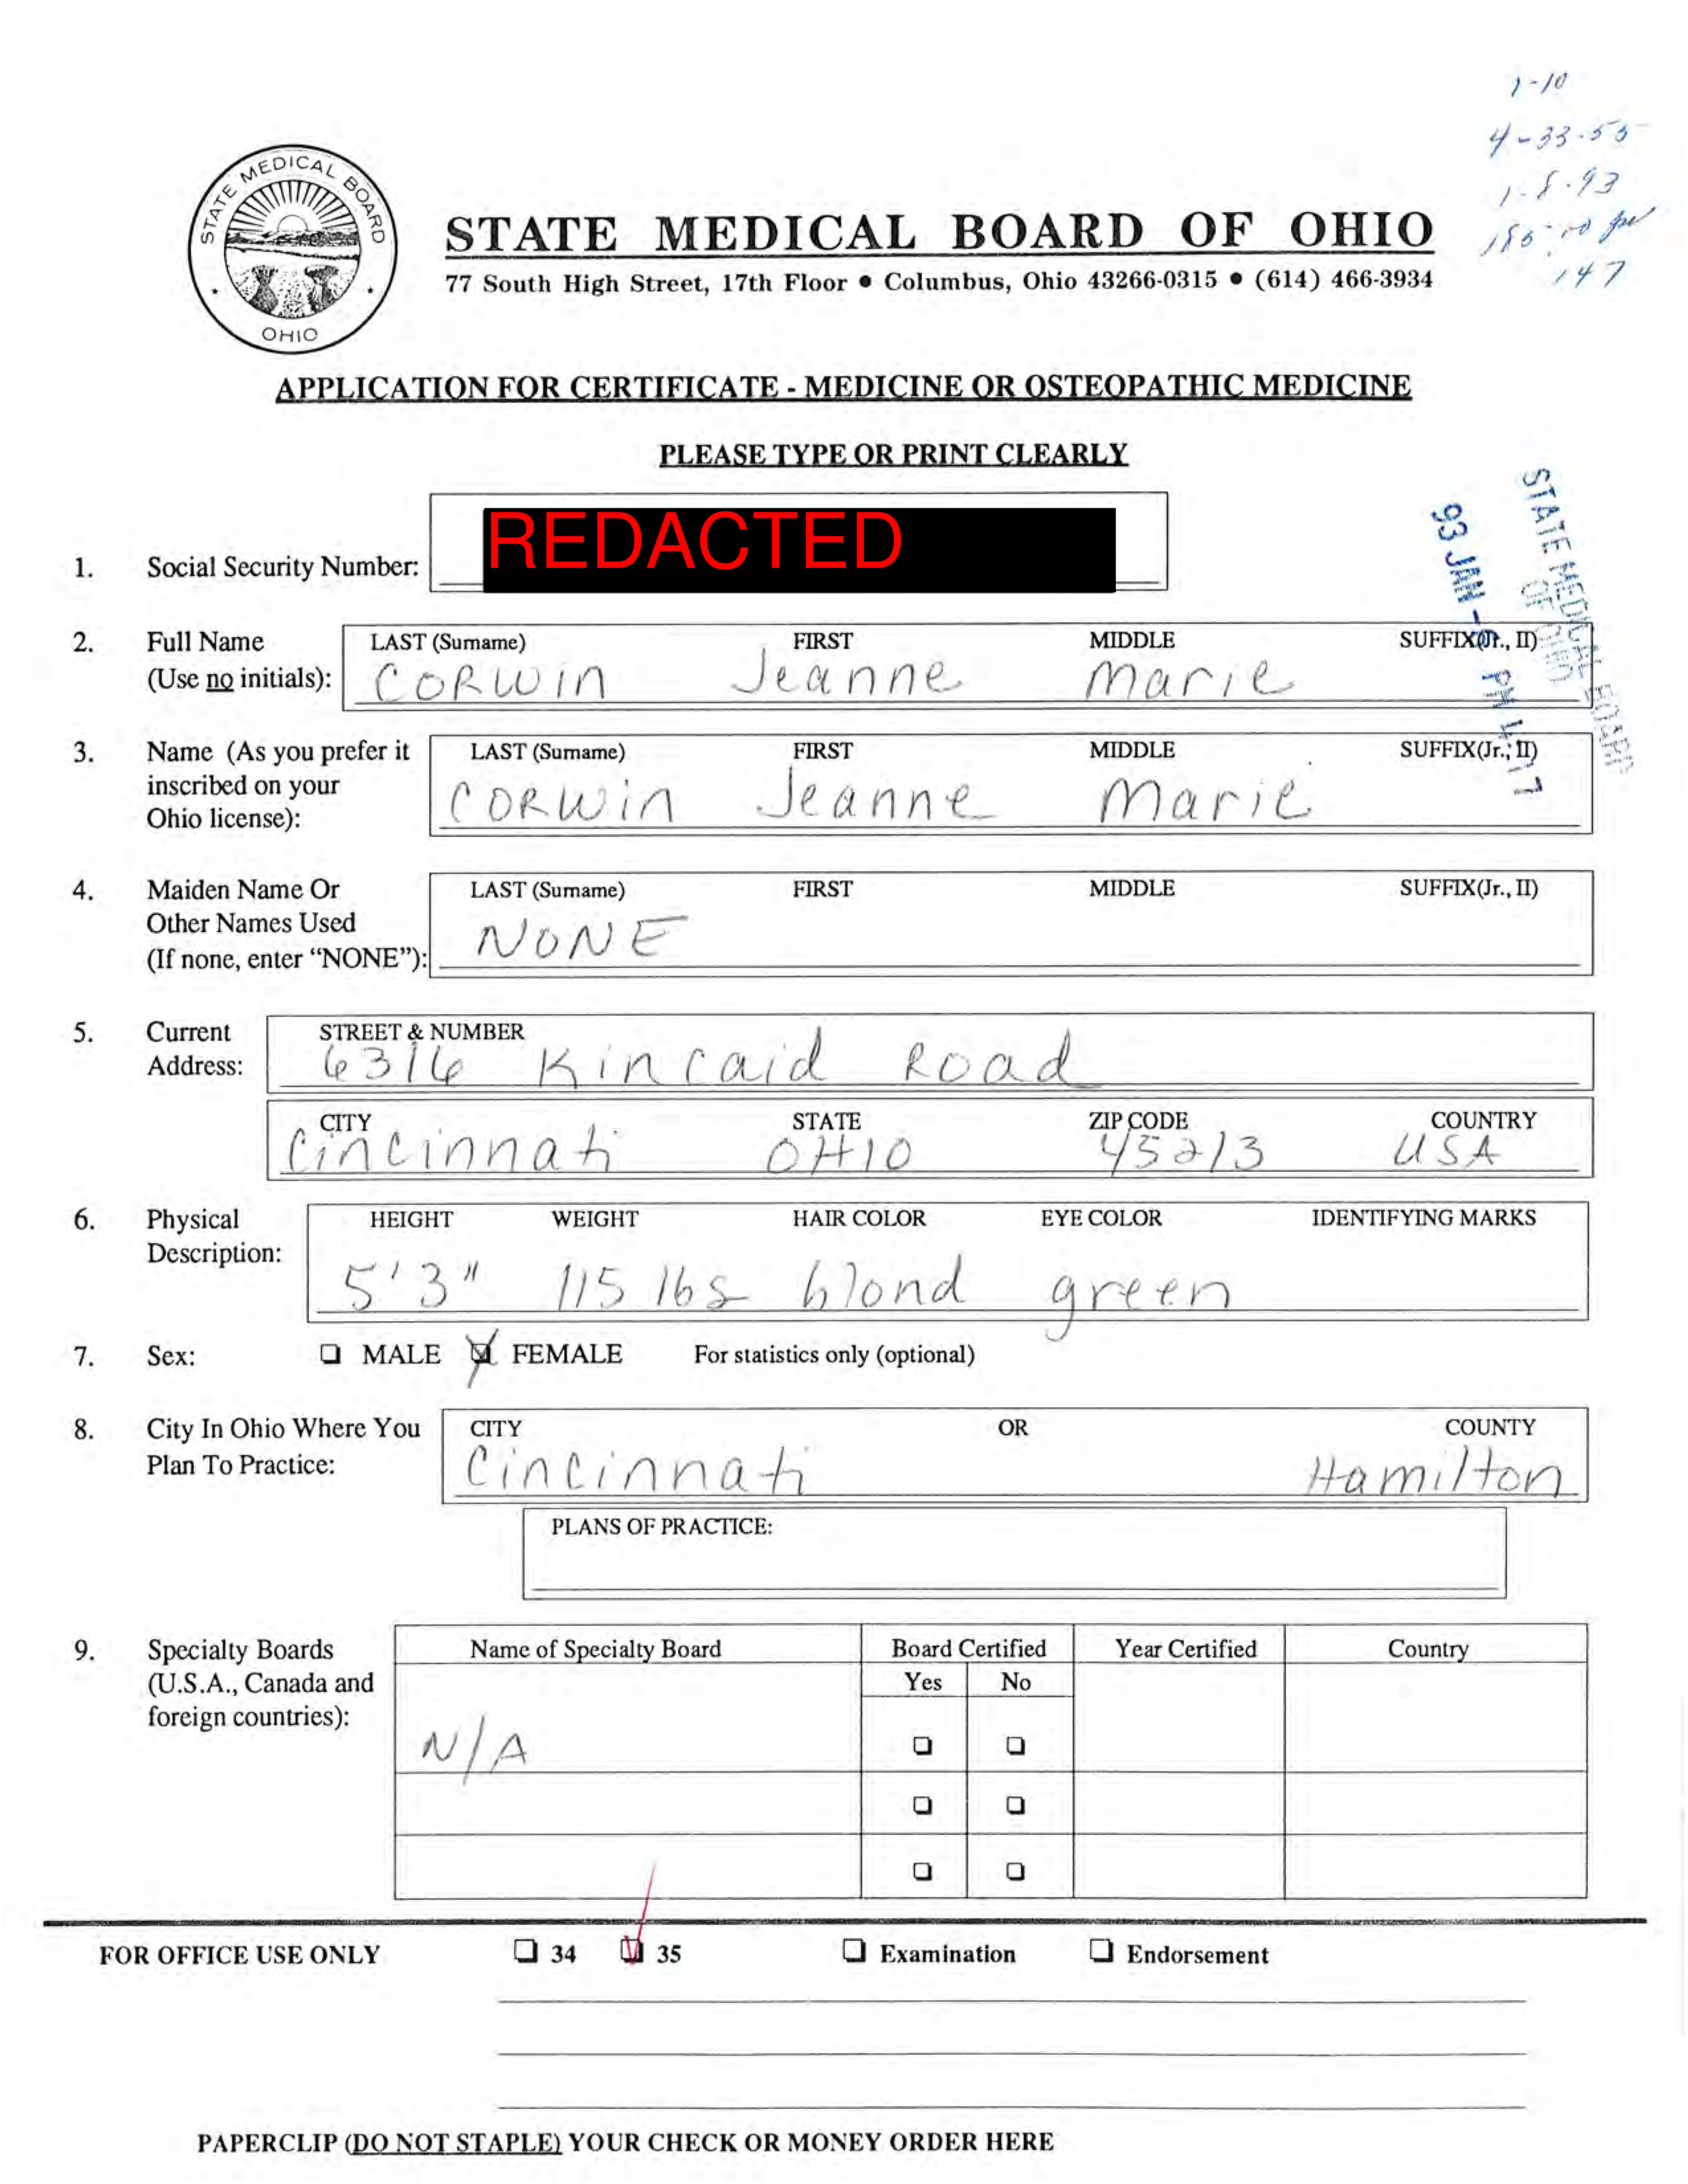 1-10
4-33-55
1-8-93
147
STATE MEDICAL BOARD
OHIO
STATE MEDICAL BOARD OF OHIO
77 South High Street, 17th Floor ● Columbus, Ohio 43266-0315 ● (614) 466-3934
APPLICATION FOR CERTIFICATE - MEDICINE OR OSTEOPATHIC MEDICINE
PLEASE TYPE OR PRINT CLEARLY
STATE MEDICAL BOARD
OF OHIO
93 JAN PM 4
1. Social Security Number: REDACTED
2. Full Name (Use no initials):
LAST (Surname) FIRST MIDDLE SUFFIX(Jr., II)
CORWin Jeanne Marie
3. Name (As you prefer it inscribed on your Ohio license):
LAST (Surname) FIRST MIDDLE SUFFIX(Jr., II)
CORWin Jeanne Marie
4. Maiden Name Or Other Names Used (If none, enter “NONE”):
LAST (Surname) FIRST MIDDLE SUFFIX(Jr., II)
NONE
5. Current Address:
STREET & NUMBER
6316 Kincaid Road
CITY STATE ZIP CODE COUNTRY
Cincinnati OHIO 45213 USA
6. Physical Description:
HEIGHT WEIGHT HAIR COLOR EYE COLOR IDENTIFYING MARKS
5'3" 115 lbs blond green
7. Sex: MALE FEMALE For statistics only (optional)
8. City In Ohio Where You Plan To Practice:
CITY OR COUNTY
Cincinnati Hamilton
PLANS OF PRACTICE:
9. Specialty Boards (U.S.A., Canada and foreign countries):
Name of Specialty Board Board Certified Year Certified Country
Yes No
N/A
FOR OFFICE USE ONLY 34 35 Examination Endorsement
PAPERCLIP (DO NOT STAPLE) YOUR CHECK OR MONEY ORDER HERE